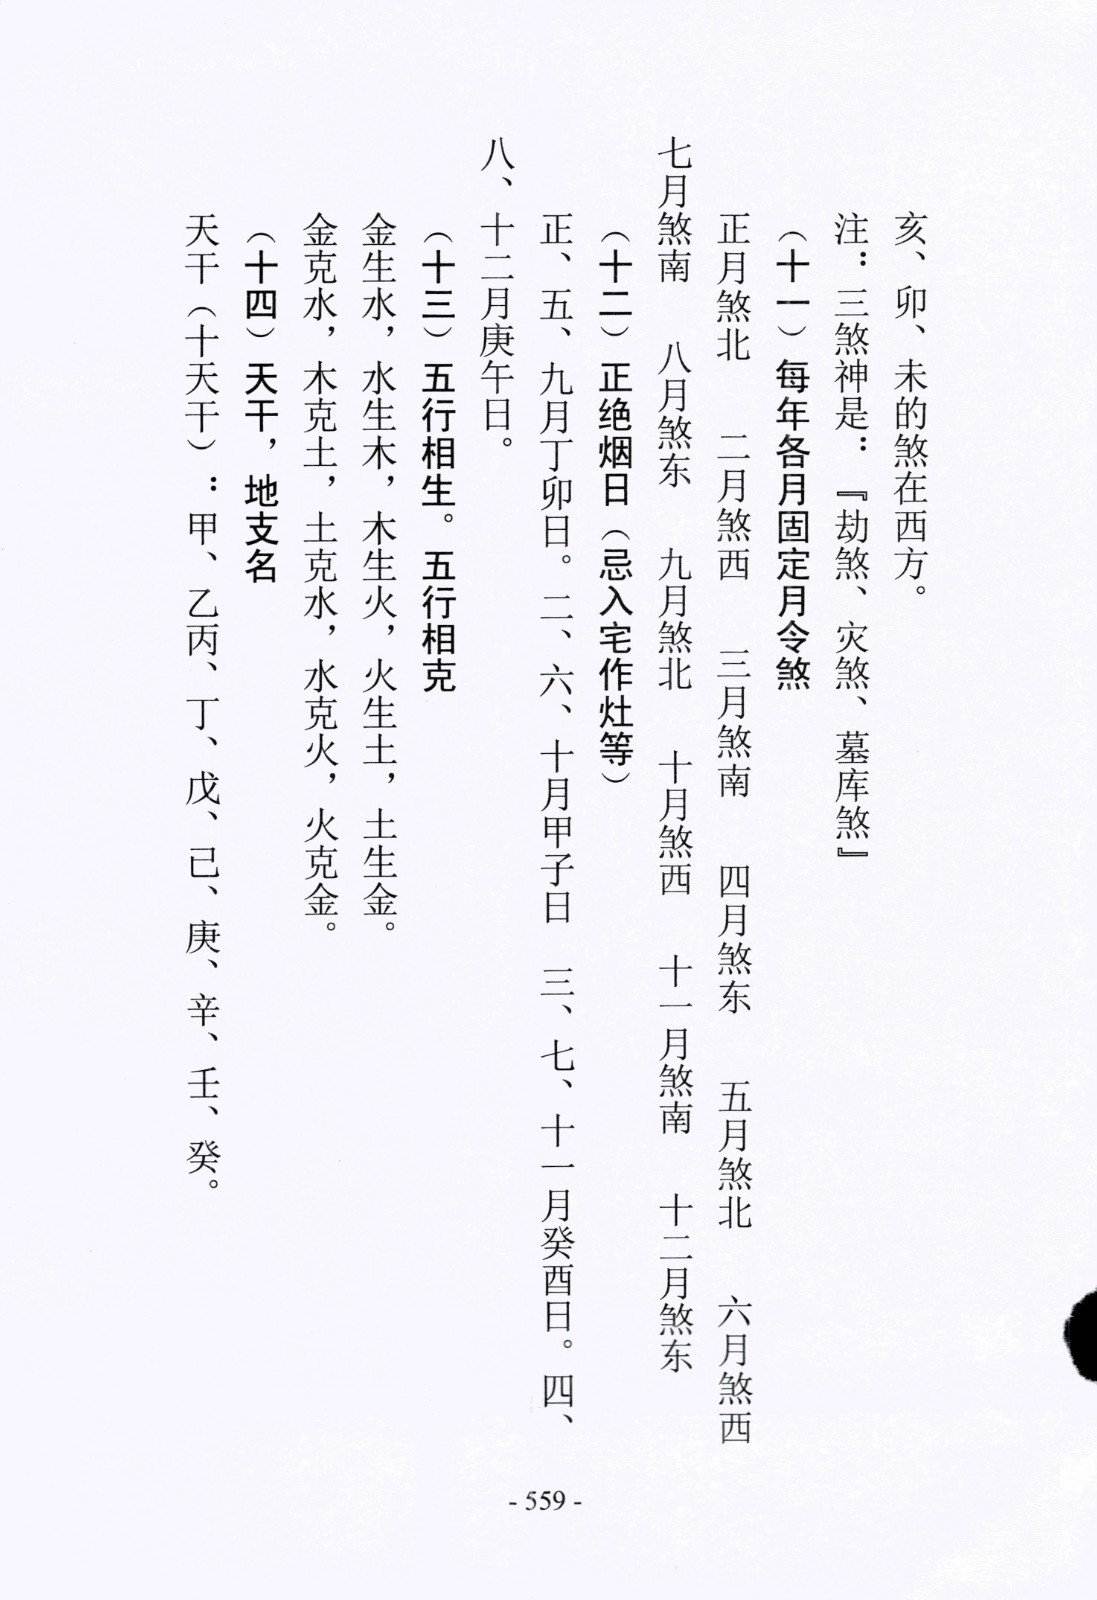 亥、卯、未的煞在西方。
注：三煞神是：『劫煞、灾煞、墓库煞』
（十一）每年各月固定月令煞
正月煞北　二月煞西　三月煞南　四月煞东　五月煞北　六月煞西
七月煞南　八月煞东　九月煞北　十月煞西　十一月煞南　十二月煞东
（十二）正绝烟日（忌入宅作灶等）
正、五、九月丁卯日。二、六、十月甲子日　三、七、十一月癸酉日。四、
八、十二月庚午日。
（十三）五行相生。五行相克
金生水，水生木，木生火，火生土，土生金。
金克水，木克土，土克水，水克火，火克金。
（十四）天干，地支名
天干（十天干）：甲、乙丙、丁、戊、己、庚、辛、壬、癸。
- 559 -